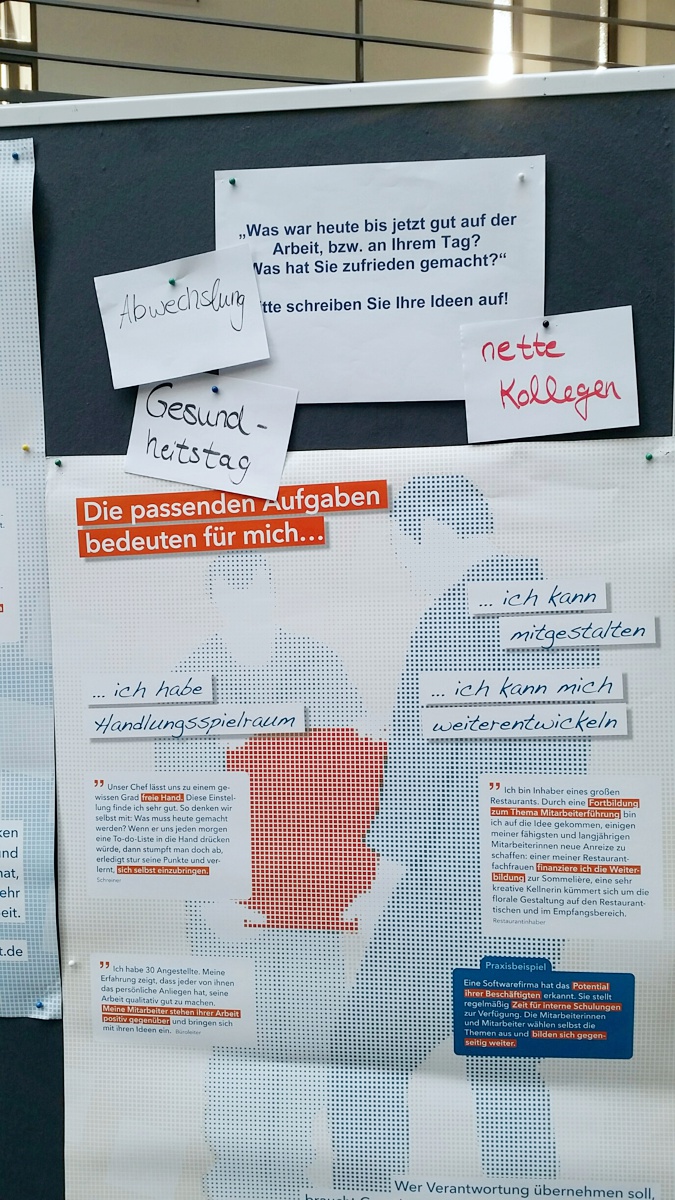 „Was war heute bis jetzt gut auf der
Arbeit, bzw. an Ihrem Tag?
Was hat Sie zufrieden gemacht?“
tte schreiben Sie Ihre Ideen auf!
Abwechslung
nette
Kollegen
Gesund-
heitstag
Die passenden Aufgaben
bedeuten für mich...
... ich kann
mitgestalten
... ich habe
Handlungsspielraum
... ich kann mich
weiterentwickeln
” Unser Chef lässt uns zu einem ge-
wissen Grad freie Hand. Diese Einstel-
lung finde ich sehr gut. So denken wir
selbst mit: Was muss heute gemacht
werden? Wenn er uns jeden morgen
eine To-do-Liste in die Hand drücken
würde, dann stumpft man doch ab,
erledigt stur seine Punkte und ver-
lernt, sich selbst einzubringen.
Schreiner
” Ich bin Inhaber eines großen
Restaurants. Durch eine Fortbildung
zum Thema Mitarbeiterführung bin
ich auf die Idee gekommen, einigen
meiner fähigsten und langjährigen
Mitarbeiterinnen neue Anreize zu
schaffen: einer meiner Restaurant-
fachfrauen finanziere ich die Weiter-
bildung zur Sommelière, eine sehr
kreative Kellnerin kümmert sich um die
florale Gestaltung auf den Restaurant-
tischen und im Empfangsbereich.
Restaurantinhaber
” Ich habe 30 Angestellte. Meine
Erfahrung zeigt, dass jeder von ihnen
das persönliche Anliegen hat, seine
Arbeit qualitativ gut zu machen.
Meine Mitarbeiter stehen ihrer Arbeit
positiv gegenüber und bringen sich
mit ihren Ideen ein. Büroleiter
Praxisbeispiel
Eine Softwarefirma hat das Potential
ihrer Beschäftigten erkannt. Sie stellt
regelmäßig Zeit für interne Schulungen
zur Verfügung. Die Mitarbeiterinnen
und Mitarbeiter wählen selbst die
Themen aus und bilden sich gegen-
seitig weiter.
Wer Verantwortung übernehmen soll,
ken
und
hat,
ehr
eit.
t.de